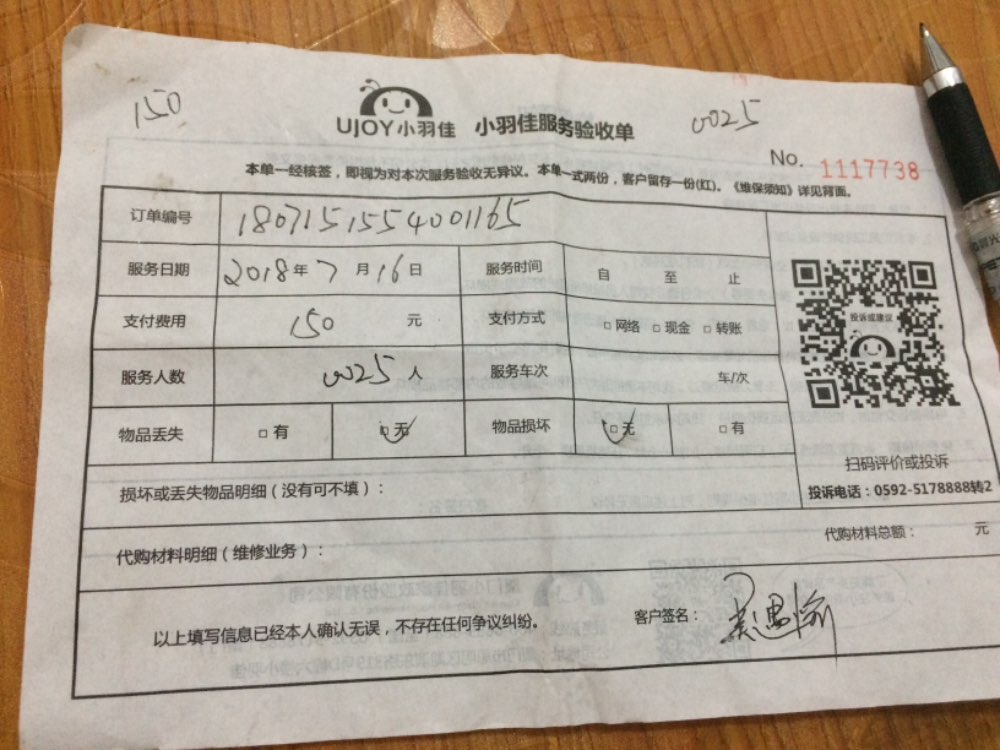 150
UJOY小羽佳 小羽佳服务验收单
0025
No. 1117738
本单一经核签，即视为对本次服务验收无异议。本单一式两份，客户留存一份(红)。《维保须知》详见背面。
订单编号 1807151554001165
服务日期 2018年7月16日 服务时间 自 至 止
支付费用 150 元 支付方式 □网络 □现金 □转账
投诉或建议
服务人数 0025人 服务车次 车/次
物品丢失 □有 □无 物品损坏 □无 □有
扫码评价或投诉
投诉电话：0592-5178888转2
损坏或丢失物品明细（没有可不填）：
代购材料明细（维修业务）： 代购材料总额： 元
以上填写信息已经本人确认无误，不存在任何争议纠纷。 客户签名：